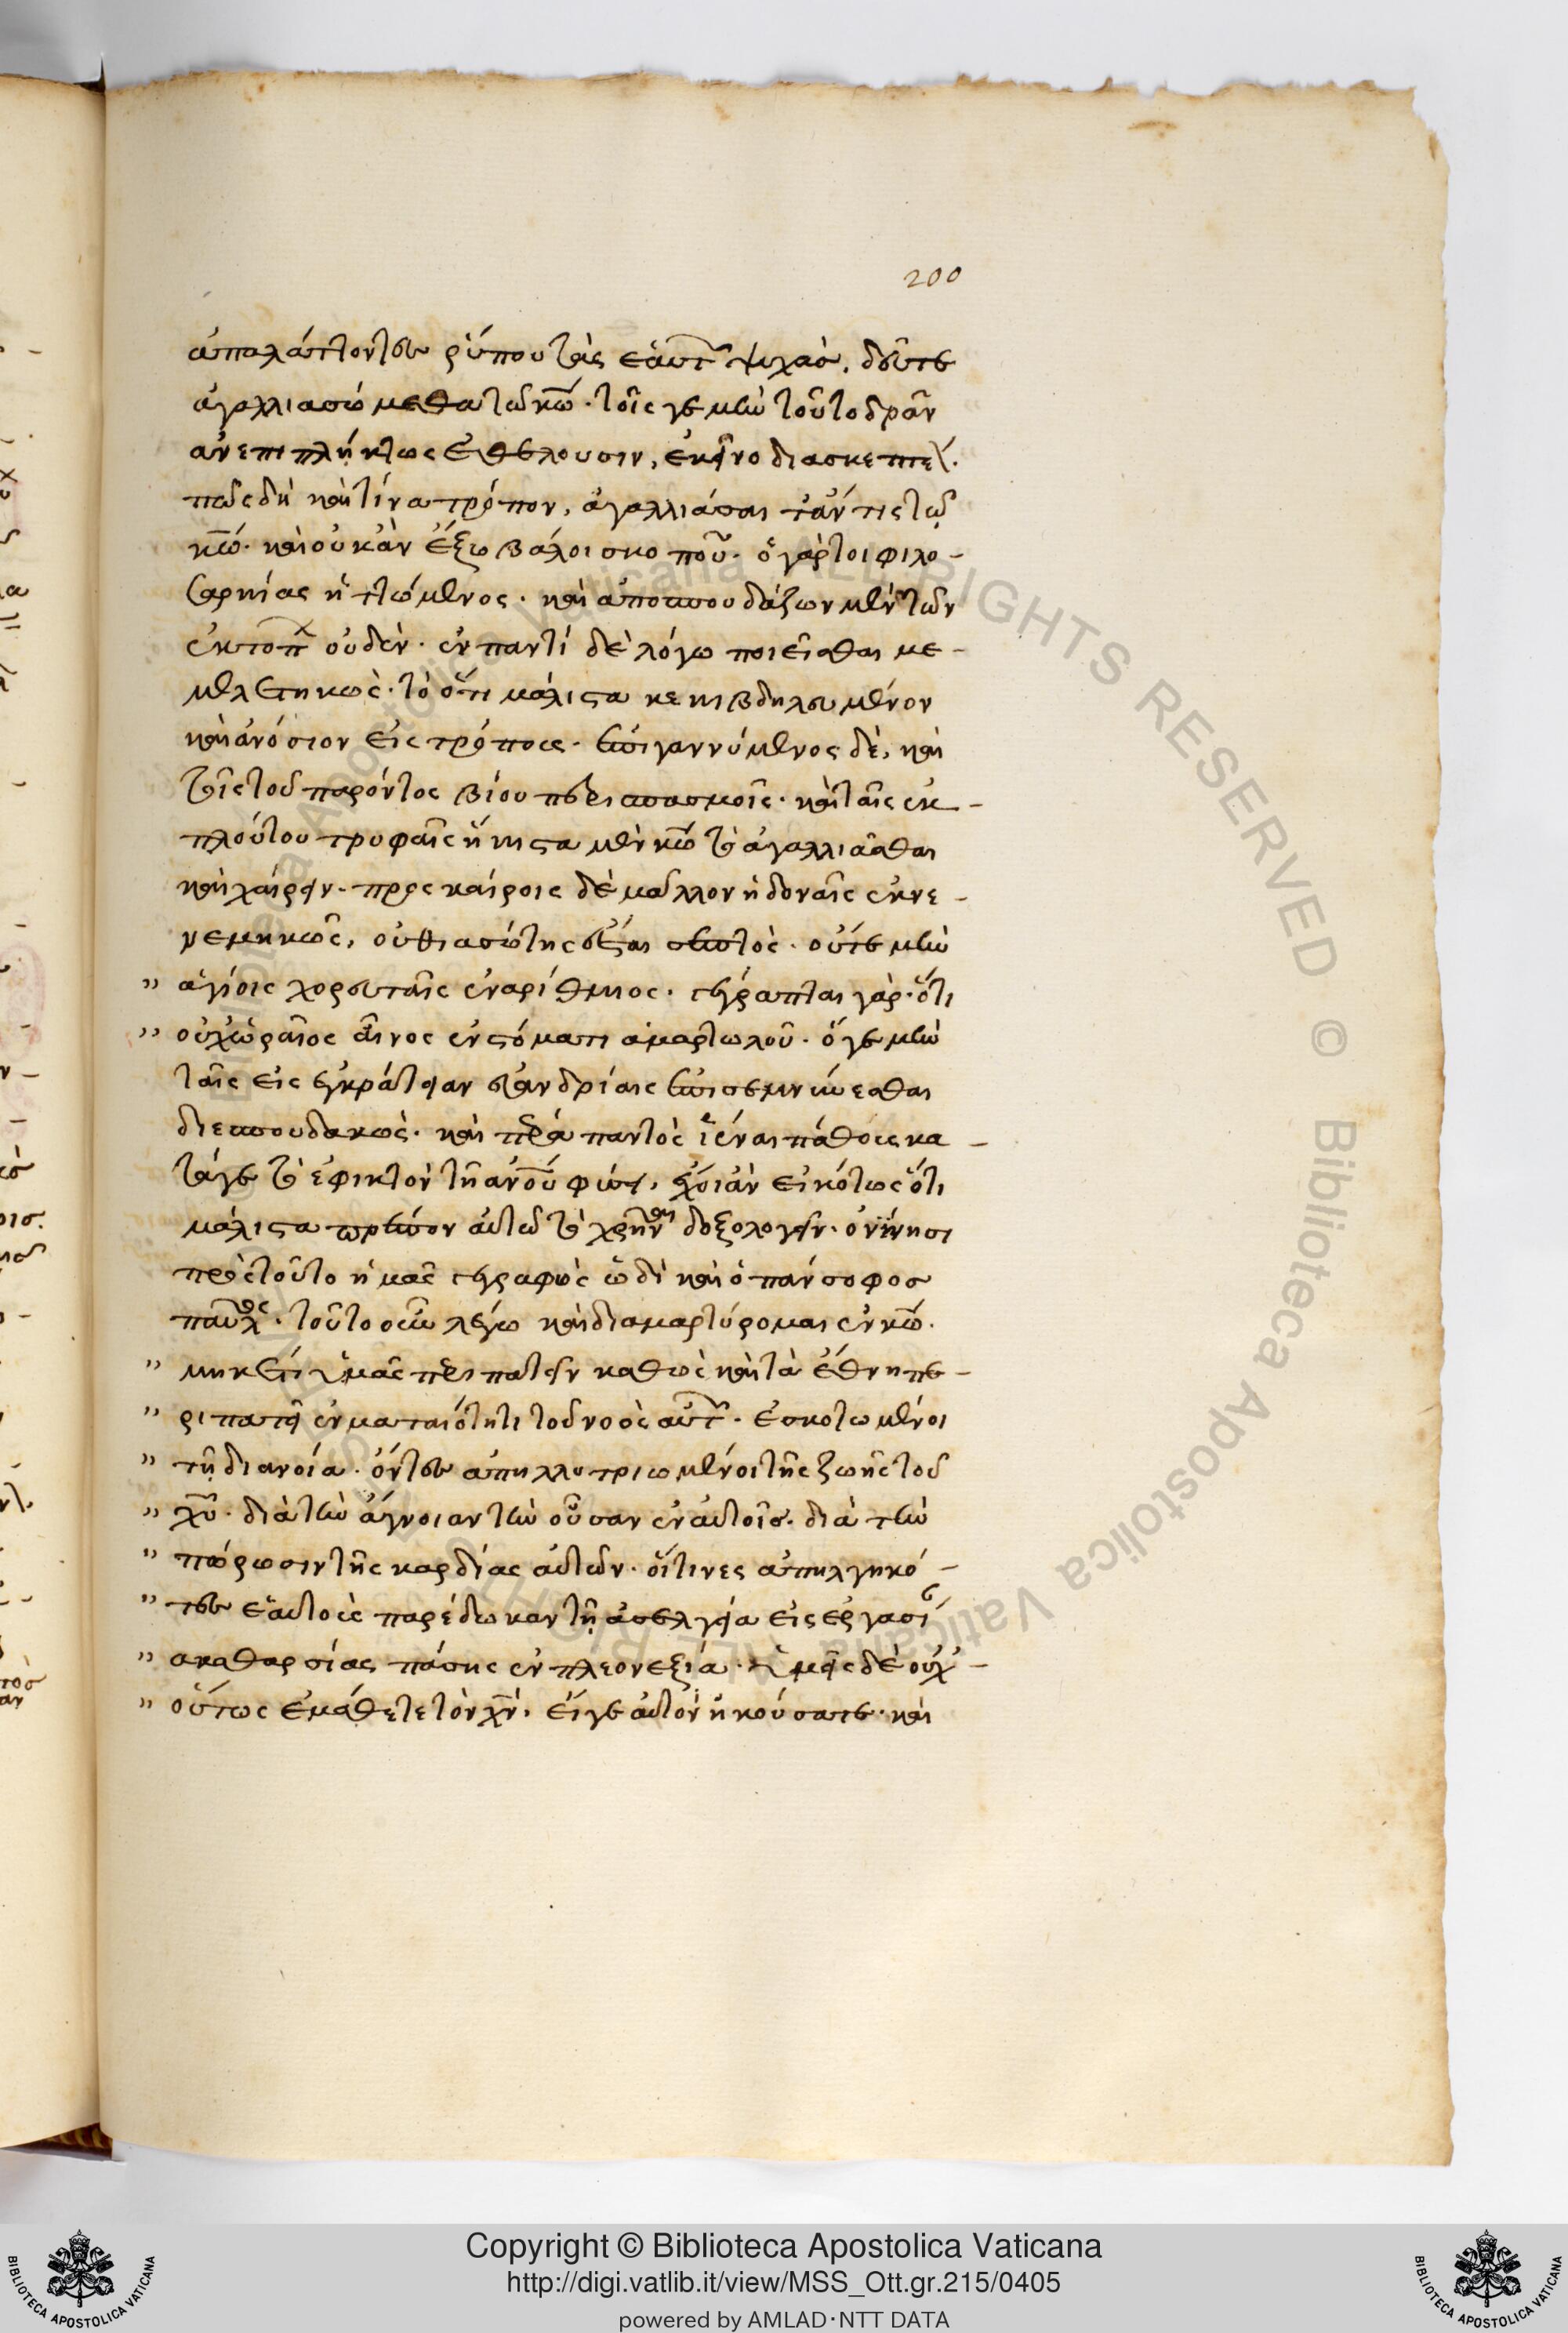 200
ἀπαλάττοντες ῥύπου τὰς ἑαυτ ψυχάς. δεῦτε
ἀγαλλιασώμεθα τῶ κῶ. τοῖς γε μὴν τοῦτο δρᾶν
ἀνεπιπλήκτως ἐθέλουσιν, ἐκεῖνο διασκεπτε.
πῶς δὴ καὶ τίνα τρόπον, ἀγαλλιάσαι τ' ἄν τις τῶ
κῶ. καὶ οὐκ ἂν ἔξω βάλοι σκοποῦ. ὁ γάρ τοι φιλο-
σαρκίας ἡττώμενος. καὶ ἀποσπουδάζων μὲν τῶν
ἐκτοπ οὐδέν. ἐν παντὶ δὲ λόγω ποιεῖσθαι με-
μελετηκὼς. τὸ ὅτι μάλιστα κεκιβδηλευμένον
καὶ ἀνόσιον εἰς τρόπους. ἐπιγαννύμενος δὲ, καὶ
τοῖς τοῦ παρόντος βίου περισπασμοῖς. καὶ ταῖς ἐκ-
πλούτου τρυφαῖς ἥκιστα μὲν κῶ τὸ ἀγαλλιᾶσθαι
καὶ χαίρειν. προσκαίροις δὲ μᾶλλον ἡδοναῖς ἐκνε-
νεμηκὼς, οὐ θιασώτης ἔσται σεπτὸς. οὔτε μὴν
" ἁγίοις χορευταῖς ἐναρίθμιος. γέγραπται γάρ. ὅτι
" οὐχ ὡραῖος αἶνος ἐν στόματι ἁμαρτωλοῦ. ὅ γε μὴν
ταῖς εἰς ἐγκράτειαν εὐανδρίαις ἐπισεμνύνεσθαι
διεσπουδακὼς. καὶ πέρα παντὸς ἰέναι πάθους κα-
τά γε τὸ ἐφικτὸν τῆ ἀνου φύσει, ἔχοι ἂν εἰκότως ὅτι
μάλιστα πρέπον αὐτῶ τὸ χρῆναι δοξολογεῖν. ὀνίνησι
πρὸς τοῦτο ἡμᾶς γεγραφὼς ὡδὶ καὶ ὁ πάνσοφος
παῦλος. τοῦτο οὖν λέγω καὶ διαμαρτύρομαι ἐν κῶ.
" μηκέτι ὑμᾶς περιπατεῖν καθὼς καὶ τὰ ἔθνη πε-
" ριπατεῖ ἐν ματαιότητι τοῦ νοὸς αὐτ. ἐσκοτωμένοι
" τῆ διανοία. ὄντες ἀπηλλοτριωμένοι τῆς ζωῆς τοῦ
" χυ. διὰ τὴν ἄγνοιαν τὴν οὖσαν ἐν αὐτοῖς. διὰ τὴν
" πώρωσιν τῆς καρδίας αὐτῶν. οἵτινες ἀπηλγηκό-
" τες ἑαυτοὺς παρέδωκαν τῆ ἀσελγεία εἰς ἐργασί
" ἀκαθαρσίας πάσης ἐν πλεονεξία. ὑμεῖς δὲ οὐχ-
" οὕτως ἐμάθετε τὸν χν, εἴγε αὐτὸν ἠκούσατε. καὶ
Copyright © Biblioteca Apostolica Vaticana
http://digi.vatlib.it/view/MSS_Ott.gr.215/0405
powered by AMLAD·NTT DATA